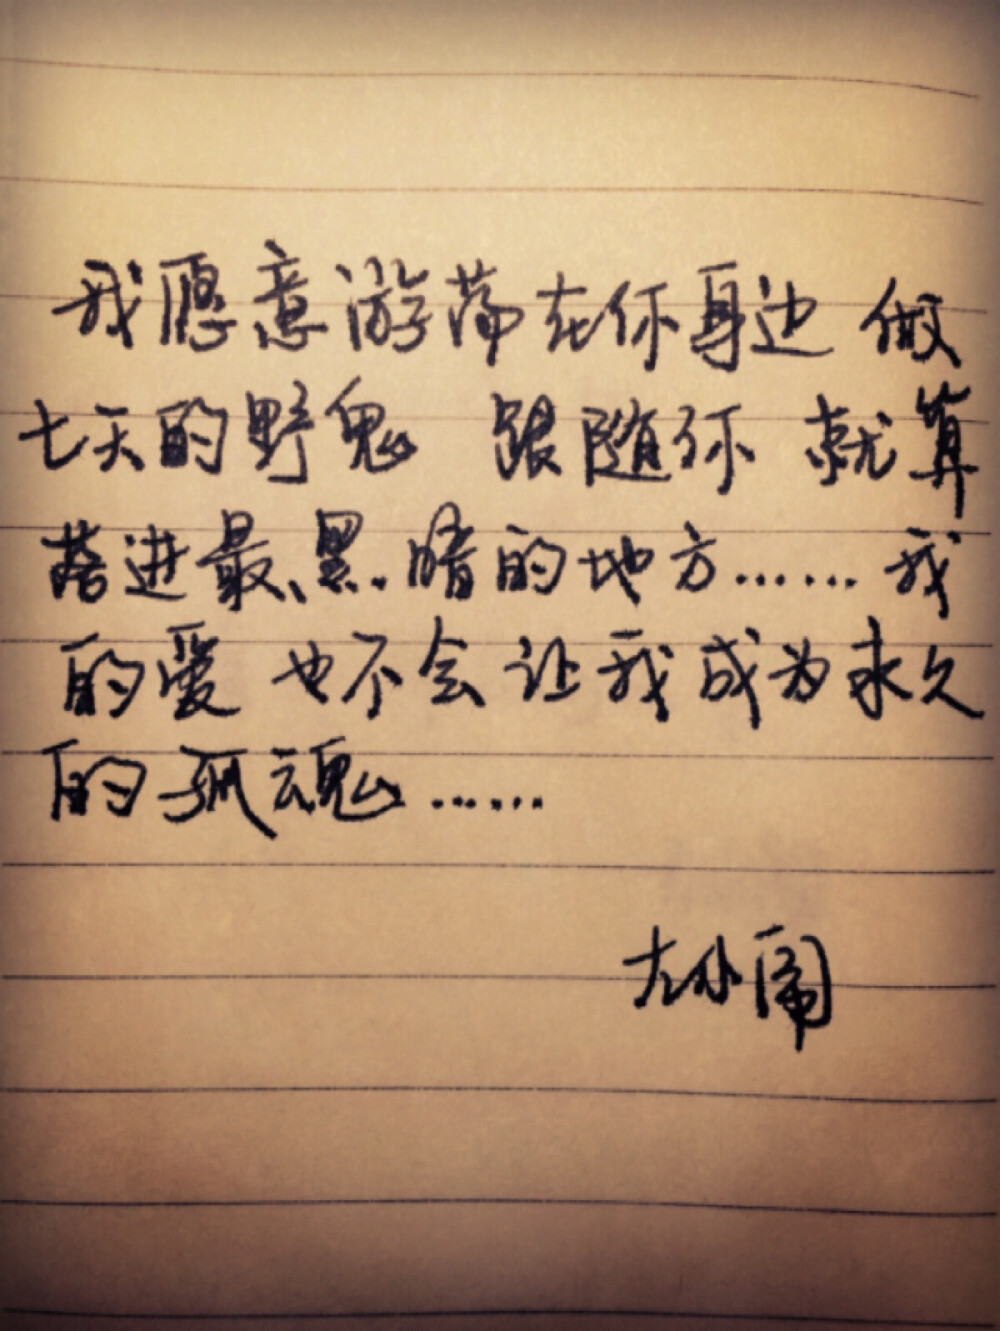 我愿意游荡在你身边 做
七天的野鬼 跟随你 就算
落进最黑暗的地方……我
的爱 也不会让我成为永久
的孤魂……
左小闹